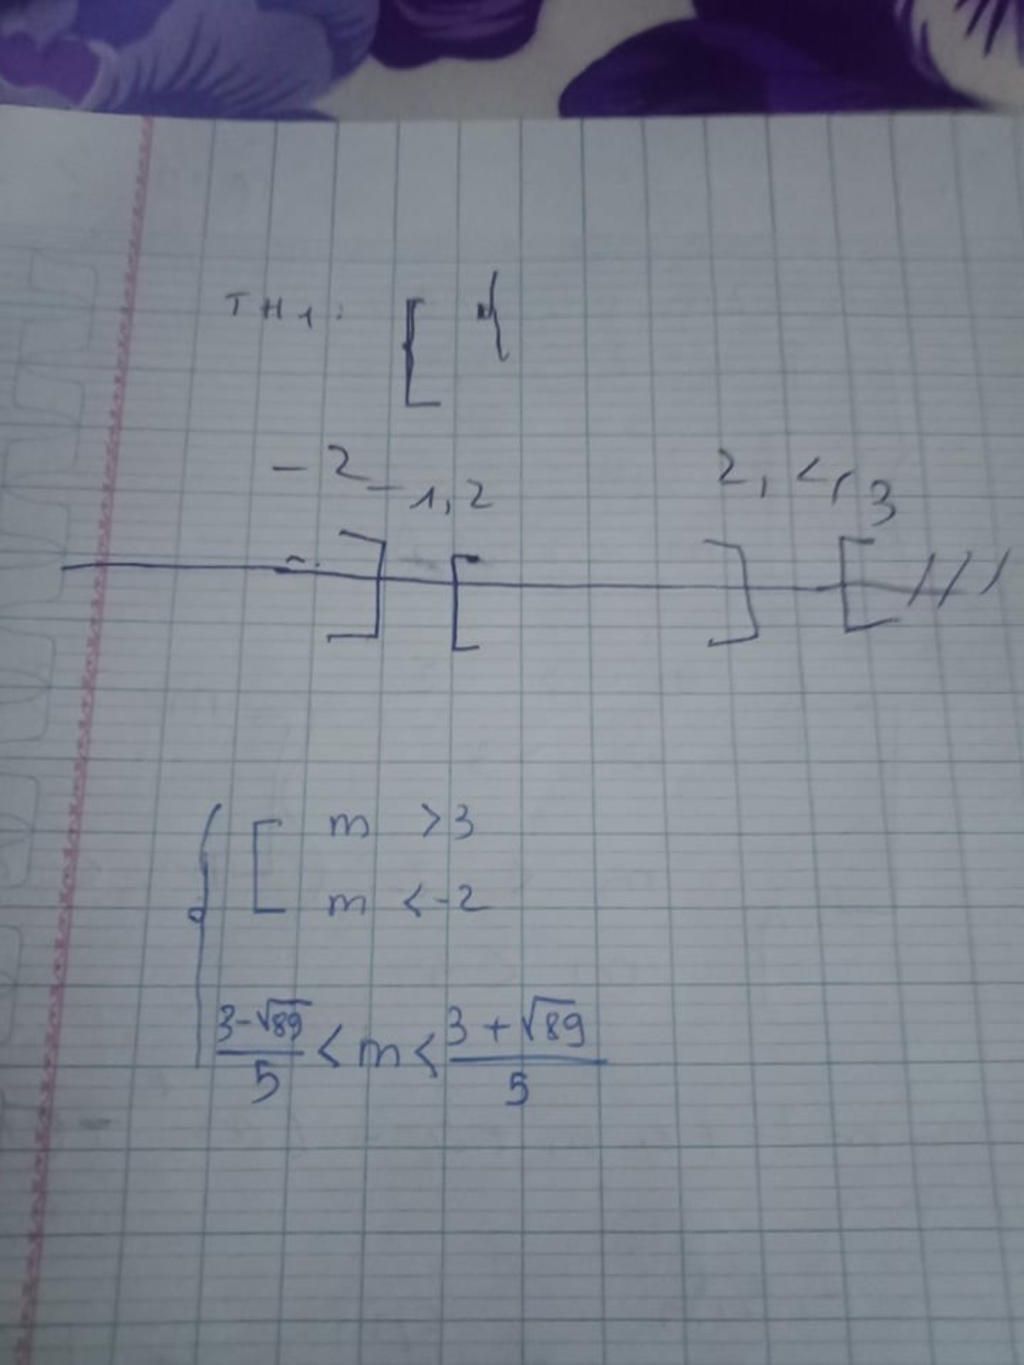 TH1:
-2
-1,2
2,4
3
m >3
m <-2
3-√89/5 < m < 3+√89/5